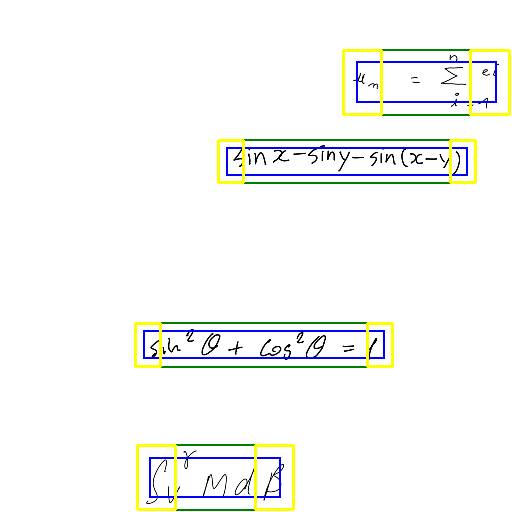 μ_n = \sum_{i=1}^{n} e_i
sin x - sin y - sin(x-y)
sin²θ + cos²θ = 1
∫_v^γ M d β